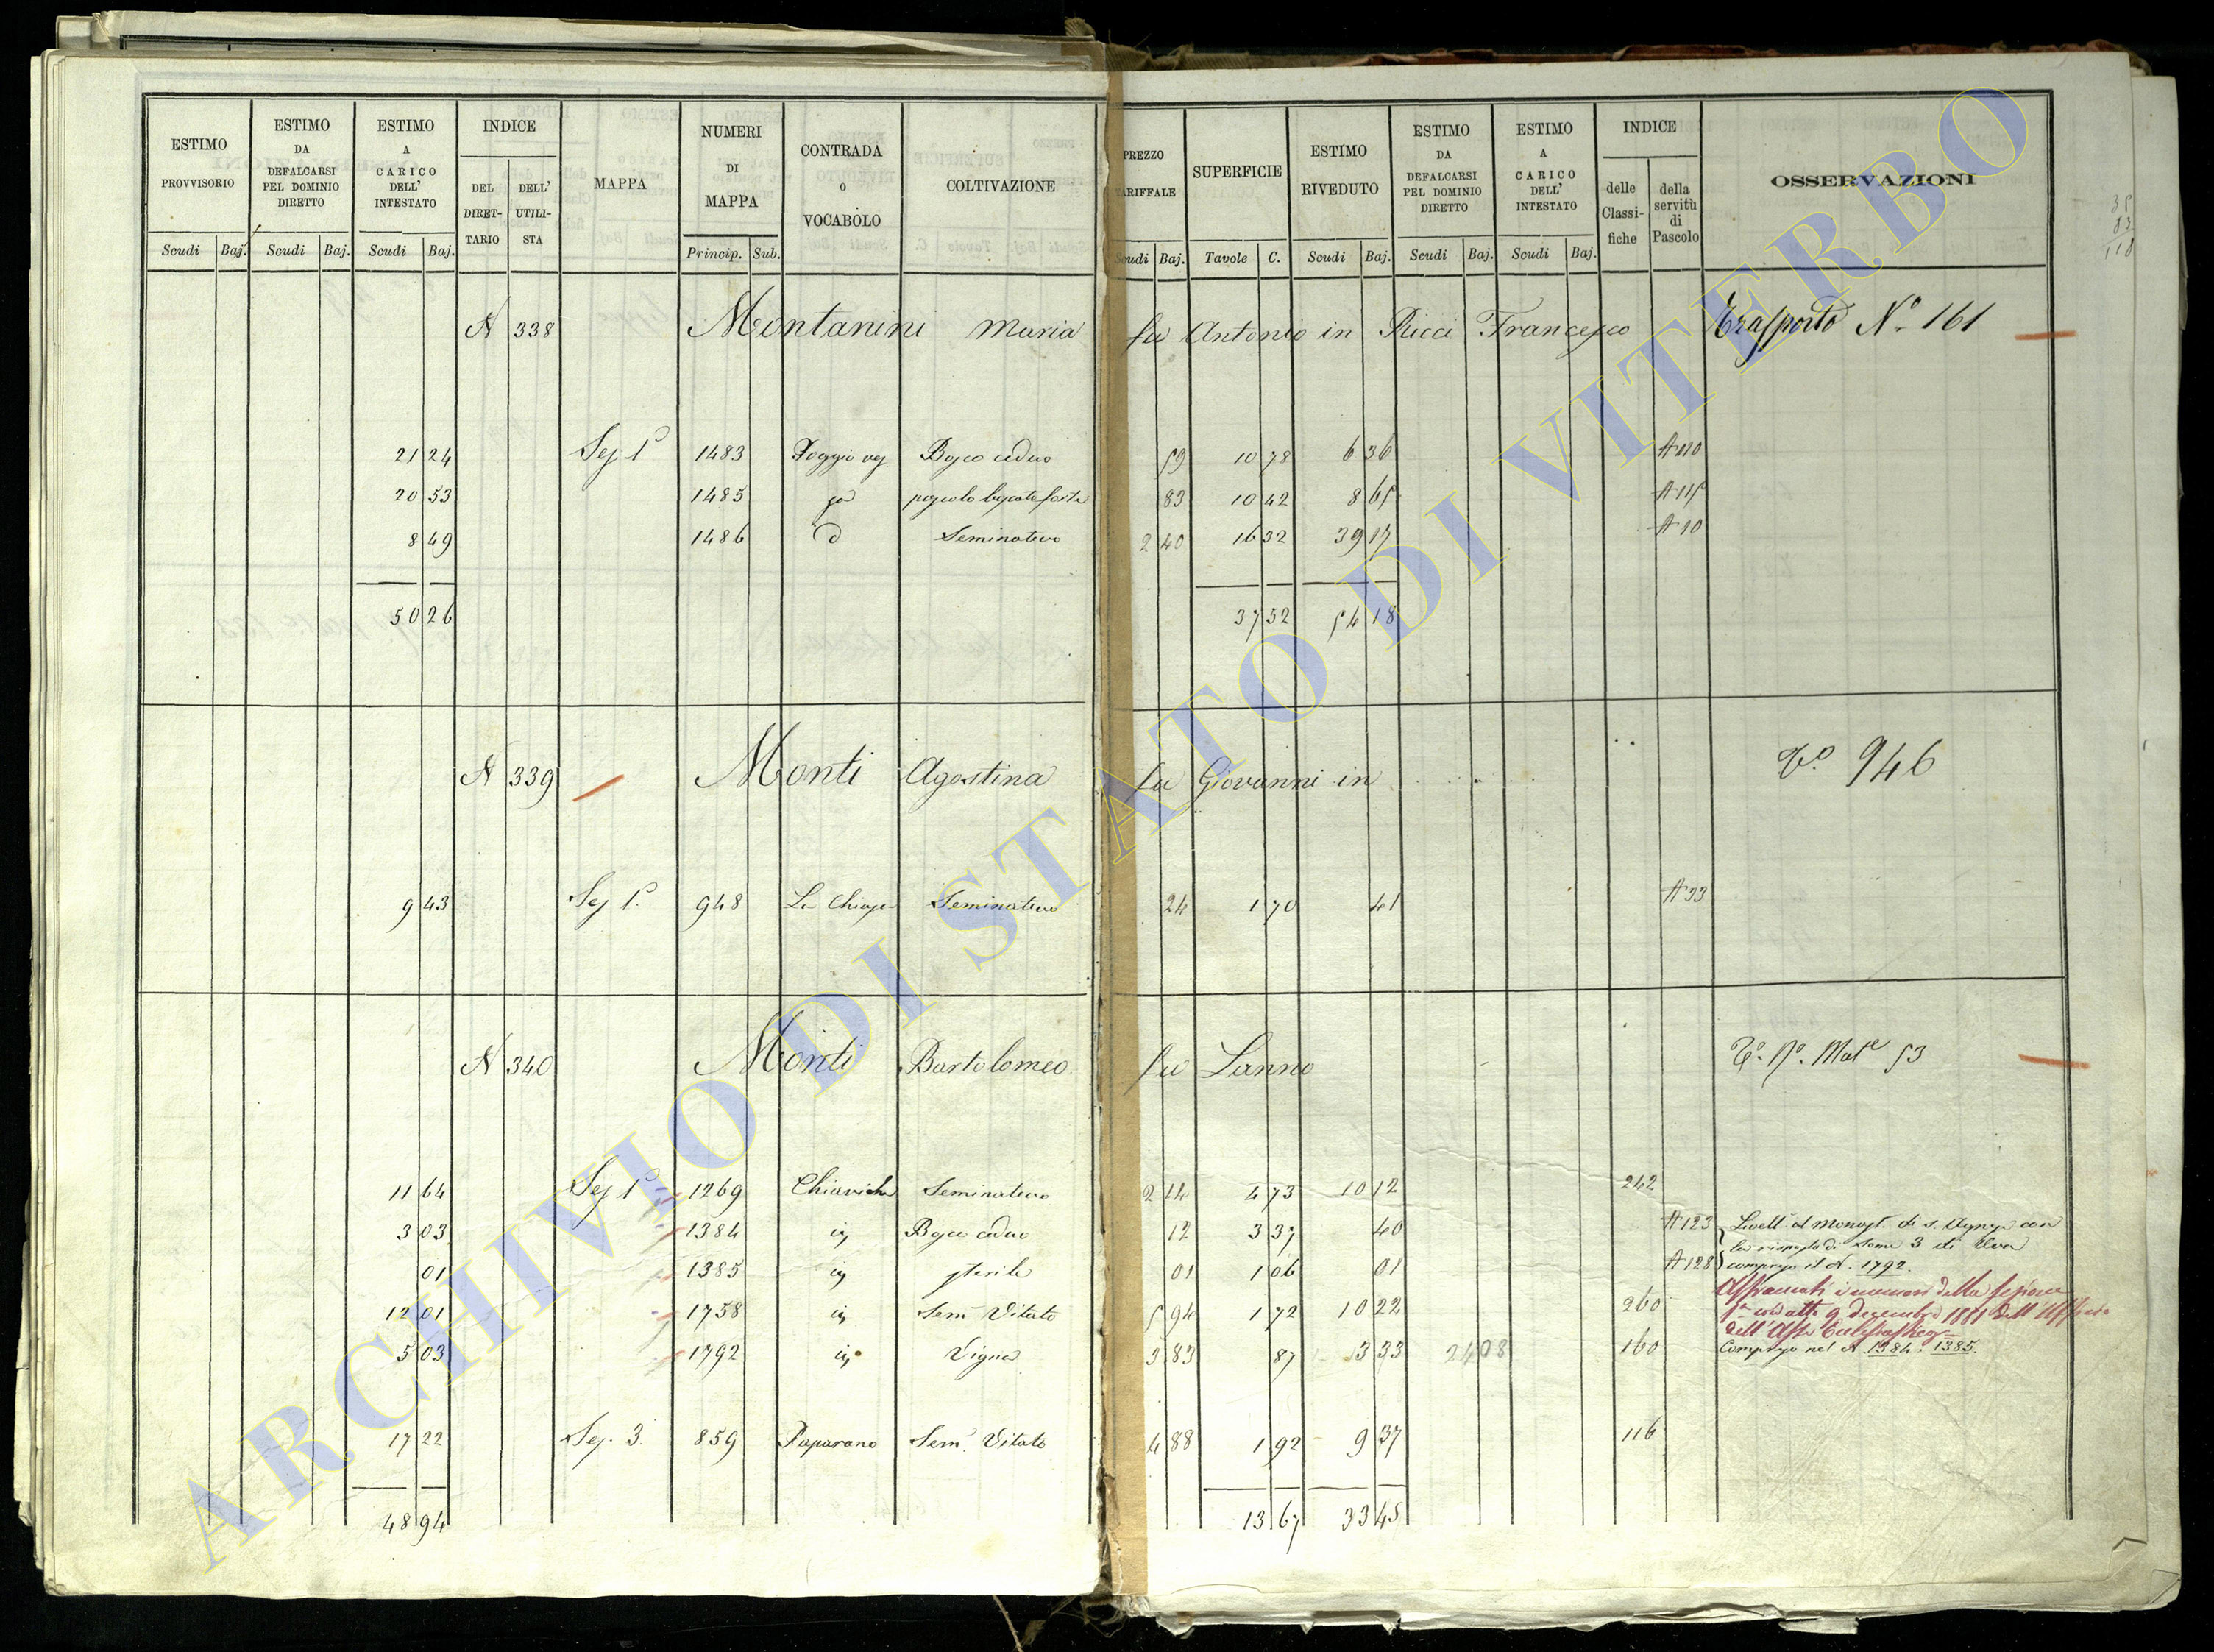 ESTIMO PROVVISORIO | ESTIMO DA DEFALCARSI PEL DOMINIO DIRETTO | ESTIMO A CARICO DELL' INTESTATO | INDICE DEL DIRETTARIO | DELL' UTILISTA | MAPPA | NUMERI DI MAPPA | CONTRADA o VOCABOLO | COLTIVAZIONE | PREZZO TARIFFALE | SUPERFICIE | ESTIMO RIVEDUTO | ESTIMO DA DEFALCARSI PEL DOMINIO DIRETTO | ESTIMO A CARICO DELL' INTESTATO | INDICE delle Classifiche | della servitù di Pascolo | OSSERVAZIONI
Scudi Baj. Scudi Baj. Scudi Baj. Princip. Sub. Scudi Baj. Tavole C. Scudi Baj. Scudi Baj. Scudi Baj.
N 338 Montanini Maria fu Antonio in Ricci Francesco Trasporto N.º 161
21 24 Sez 1ª 1483 Poggio Bosco ceduo 59 10 78 6 36 A 110
20 53 1485 pascolo boscato forte 83 10 42 8 65 A 115
8 49 1486 Seminativo 2 40 16 32 39 17 A 10
50 26 37 52 54 18
N 339 Monti Agostina fu Giovanni in Tº 946
9 43 Sez 1ª 948 La Seminativo 24 1 70 41 A 33
N 340 Monti Bartolomeo fu Tº Nº Matº 53
11 64 Sez 1ª 1269 Chiaviche Seminativo 2 14 4 73 10 12 242
3 03 1384 Bosco ceduo 12 3 37 40 A 123 Livell. al Monast. di S.
con la risposta di some 3 di Uva
01 1385 sterile 01 1 06 01 A 128 compreso il N. 1792.
Affrancati i numeri della sezione
12 01 1758 Sem Vitato 5 94 1 72 10 22 260 1ª con atto 9 dicembre 1881 dell'
dell' Asse Ecclesiastico
5 03 1792 Vigna 3 83 87 3 33 24 08 160 Compreso nel N 1384. 1385.
17 22 Sez. 3. 859 Paparano Sem. Vitato 4 88 1 92 9 37 116
48 94 13 67 33 45
ARCHIVIO DI STATO DI VITERBO